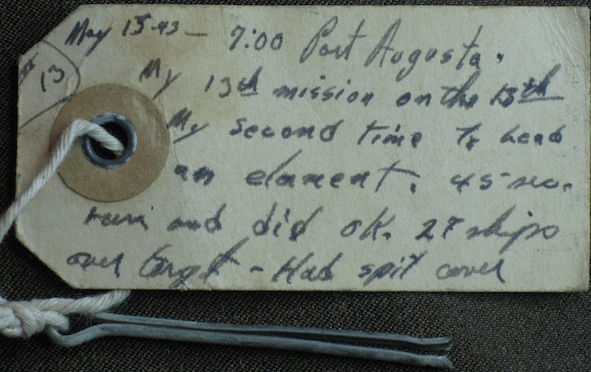 May 13-43 - 7:00 Port Augusta.
13
My 13th mission on the 13th
My second time to lead
an element. 45 sec.
run and did ok. 27 ships
over target - Had spit cover